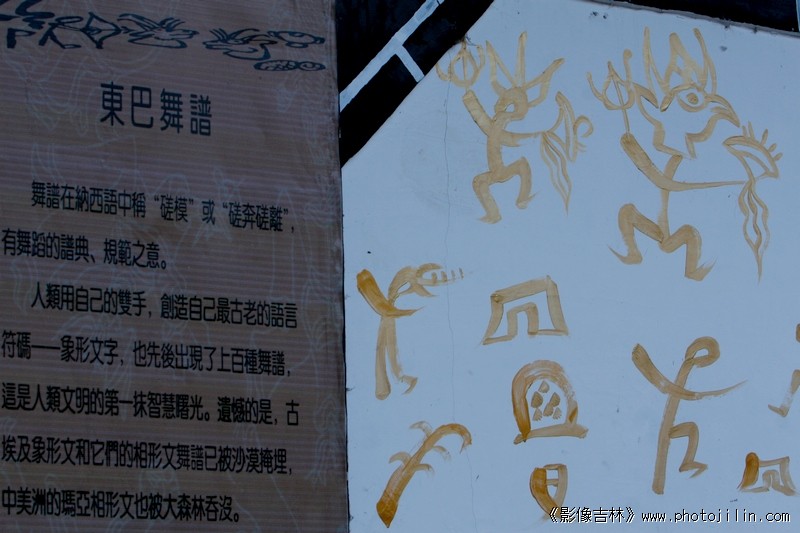 東巴舞譜
舞譜在納西語中稱“磋模”或“磋奔磋離”，
有舞蹈的譜典、規範之意。
人類用自己的雙手，創造自己最古老的語言
符碼——象形文字，也先後出現了上百種舞譜，
這是人類文明的第一抹智慧曙光。遺憾的是，古
埃及象形文和它們的相形文舞譜已被沙漠掩埋，
中美洲的瑪亞相形文也被大森林吞沒。
《影像吉林》www.photojilin.com